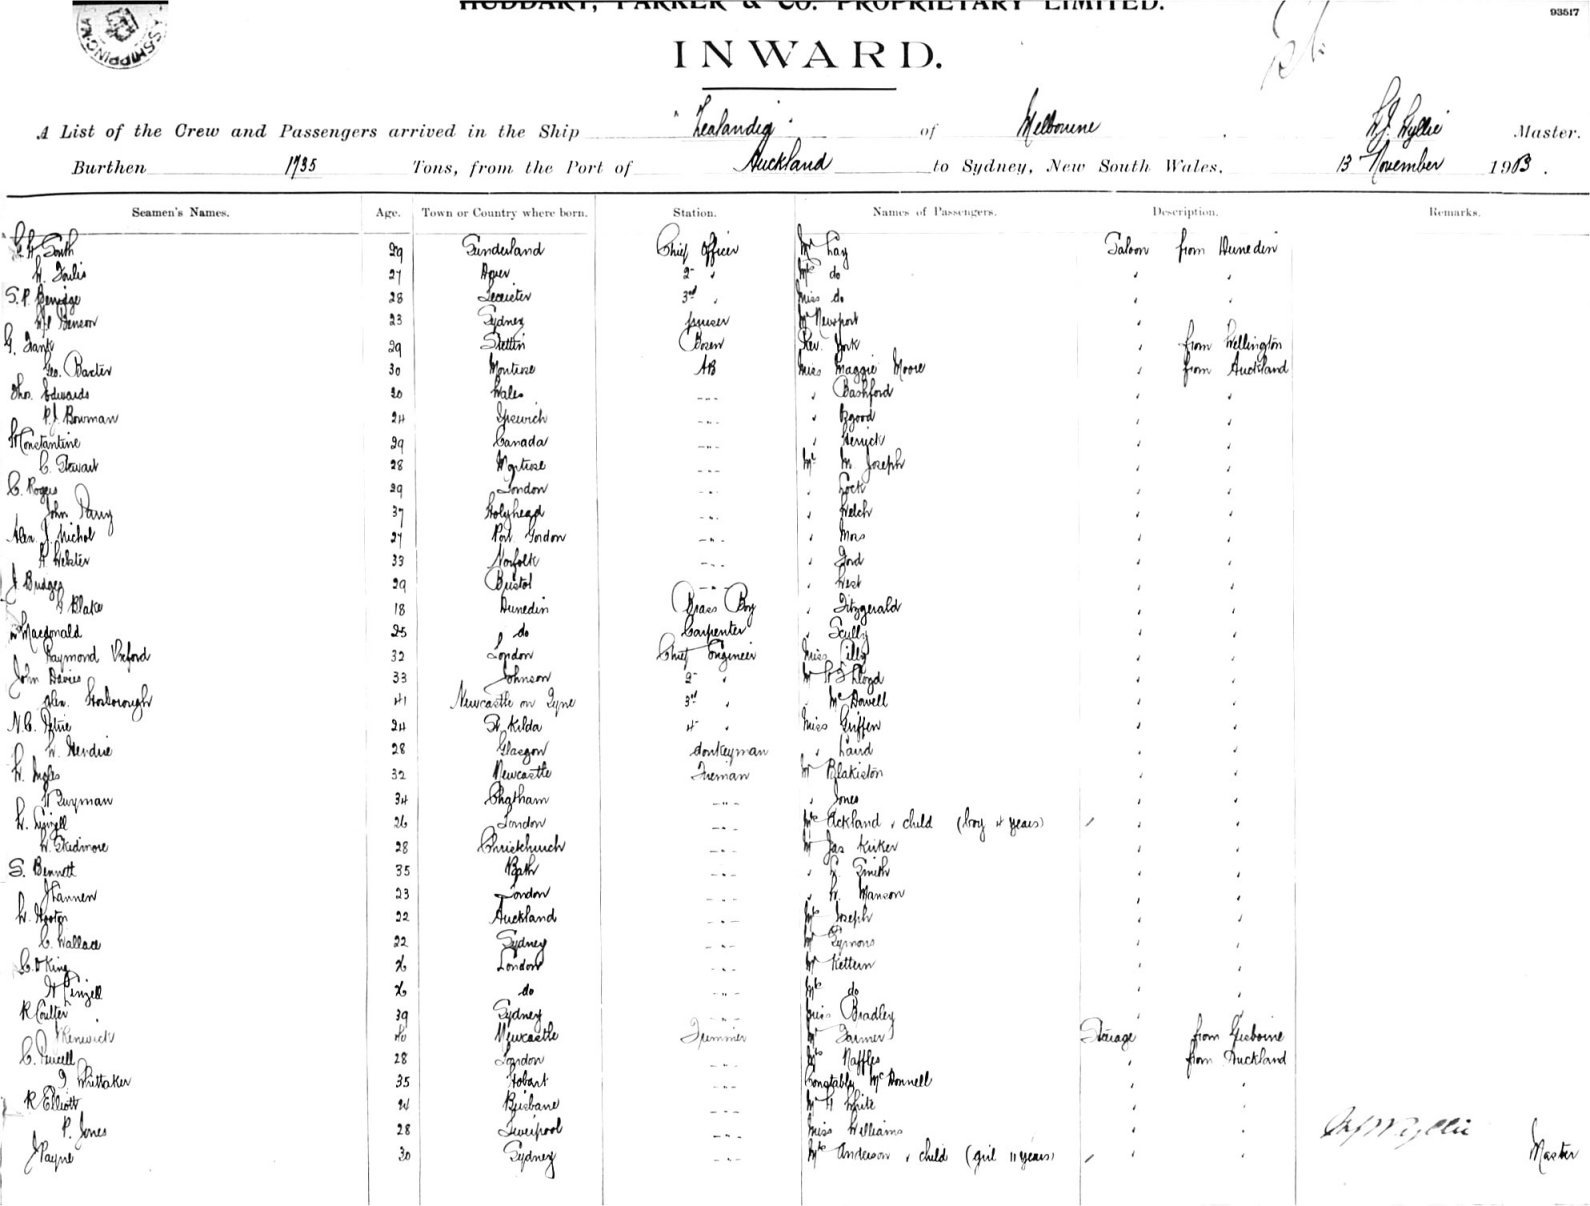 HUDDART, PARKER & CO. PROPRIETARY LIMITED.
93517
INWARD.
A List of the Crew and Passengers arrived in the Ship "Zealandia" of Melbourne, W.J. Wyllie Master.
Burthen 1735 Tons, from the Port of Auckland to Sydney, New South Wales, 13 November 1903.
Seamen's Names. Age. Town or Country where born. Station. Names of Passengers. Description. Remarks.
29 Sunderland Chief Officer Mr Saloon from Dunedin
27 Dover 2nd " Mrs do " "
S.P. 28 Leicester 3rd " Miss do " "
Benson 23 Sydney purser Mr Newport "
G. Frank 29 Stettin Bosen Rev. York " from Wellington
Geo. Baxter 30 Montrose AB Miss Maggie Moore " from Auckland
Thos. Edwards 20 Wales --- " Bashford " "
P.J. Bowman 24 Ipswich --- " " "
Constantine 29 Canada --- " " "
C. Stewart 28 Montrose --- Mr M Joseph " "
C. Rogers 29 London --- " Lock " "
John Parry 37 Holyhead --- " Welch " "
Alex. J. Nichol 27 Port Gordon --- " Moss " "
Webster 33 Norfolk --- " Ford " "
J Bridges 29 Bristol --- " West " "
Blake 18 Dunedin Brass Boy " Fitzgerald " "
Macdonald 25 do Carpenter " Scully " "
Raymond Oxford 32 London Chief Engineer Miss Lilly " "
John Davies 33 Johnson 2nd " Mr Lloyd " "
Alex. 41 Newcastle on Tyne 3rd " " McDowell " "
N.C. Petrie 24 St Kilda 4th " Miss Griffen " "
W. Hendrie 28 Glasgow donkeyman " Laird " "
W. Ingles 32 Newcastle Fireman Mr Blakiston " "
34 Chatham --- " Jones " "
W. 26 London --- Mrs Ackland & child (boy 4 years) " "
W. Skidmore 28 Christchurch --- Mr Jas Kirker " "
S. Bennett 35 Bath --- " Smith " "
J Lannen 23 London --- " W. Manson " "
W. Hooton 22 Auckland --- Mrs Joseph " "
C. Wallace 22 Sydney --- Mr Symons " "
C. King 26 London --- Mr Kettern " "
26 do --- Mrs do " "
R Coulter 39 Sydney --- Miss Bradley " "
Renwick 40 Newcastle Trimmer Mr Farmer Steerage from Gisborne
C. Purcell 28 London --- Mrs Naffles " from Auckland
Whittaker 35 Hobart --- Constable McDonnell " "
R Elliott 21 Brisbane --- Mr H White " "
P. Jones 28 Liverpool --- Miss Williams " "
J Payne 30 Sydney --- Mrs Anderson & child (girl 11 years) " "
Wyllie
Master